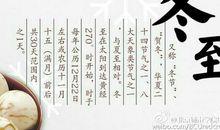 冬至
又称“冬节”、
贺冬”，华夏二
十四节气之一、八
大天象类节气之一，
与夏至相对。冬
至在太阳到达黄经
270°时开始，时于
每年公历12月22日
左右或农历十一月
十五（满月）前后
共30天范围内
之一天。